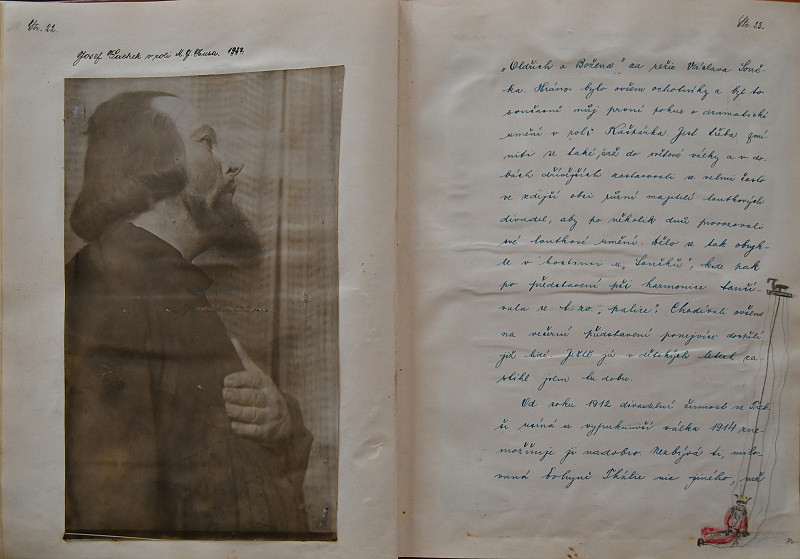 Str. 22.
Josef Lachek v roli M. J. Husa. 1947.
Str. 23.
„Oldřich a Božena" za režie Václava Soně-
ka. Hráno bylo ovšem ochotníky a byl to
současně můj první pokus o dramatické
umění v roli Kašpárka. Jest třeba zmí-
niti se také, že do světové války a v do-
bách dřívějších zastavovali se velmi často
ve zdejší obci různí majitelé loutkových
divadel, aby po několik dnů provozovali
své loutkové umění. Dělo se tak obyk-
le v hostinci u „Soněků", kde pak
po představení při harmonice tančí-
vala se t. zv. „palice". Chodívali ovšem
na večerní představení ponejvíce dospělí
již lidé. Ještě já v dětských letech za-
stihl jsem tu dobu.
Od roku 1912 divadelní činnost ve Třeb-
ši usíná a vypuknuvší válka 1914 zne-
možňuje ji nadobro. Nezbývá ti, milo-
vaná bohyně Thálie nic jiného, než